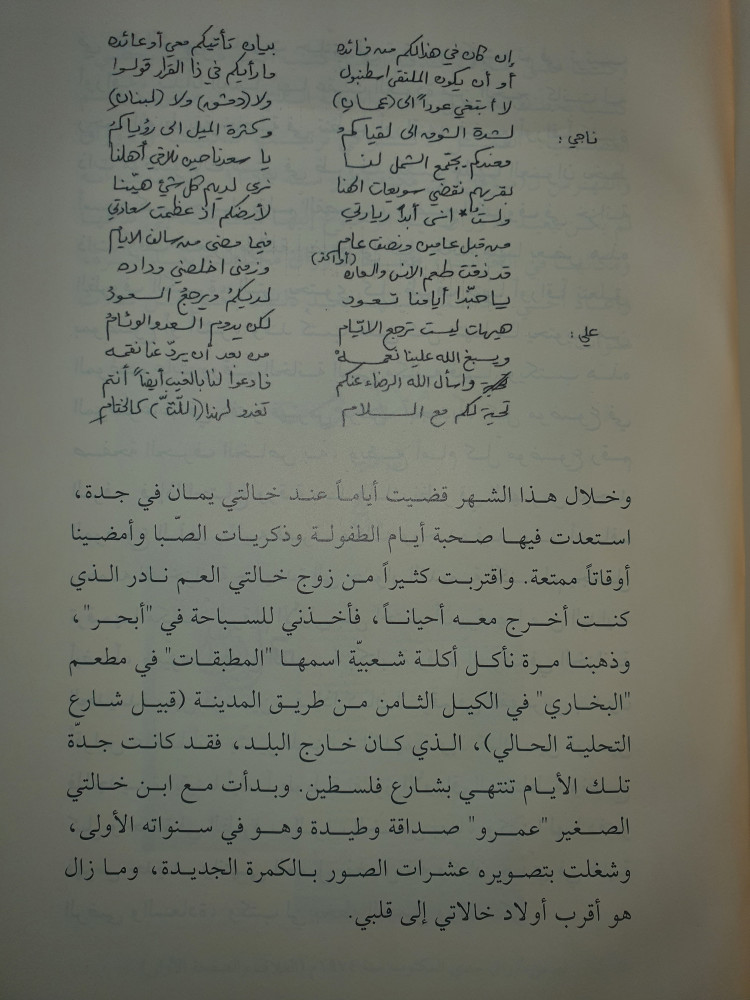 إن كان في هذا لكم من فائده بيان تأتيكم معي أو عائده
أو أن يكون الملتقى اسطنبول ما رأيكم في ذا القرار قولوا
لا أبتغي عوداً الى (عمان) ولا (دمشق) ولا (لبنان)
ناجي: لشدة الشوق الى لقياكمُ وكثرة الميل الى رؤياكمُ
فعندكم يجتمع الشمل لنا يا سعدنا حين نلاقي أهلنا
بقربهم نقضي سويعات الهنا نرى لديهم كل شيء هيّنا
ولست أنسى أبداً زيارتي لأرضكم اذ عظمت سعادتي
من قبل عامين ونصف عام فيما مضى من سالف الايام
قد ذقت طعم الانس والحلاوه وزرتي اخلصني وداده
يا حبّذا أيامنا تعود لديكمُ ويرجع السعودُ
علي: هيهات ليست ترجع الايّام لكن يدوم السعد والوئامُ
ويسبغ الله علينا نعمهْ من بعد أن يردّ عنا نقمه
واسأل الله الرضاء عنكم فادعوا لنا بالغيب أيضاً أنتم
تحية لكم مع السلام تغدو لهذا كالختام
وخلال هذا الشهر قضيت أياماً عند خالتي يمان في جدة،
استعدت فيها صحبة أيام الطفولة وذكريات الصّبا وأمضينا
أوقاتاً ممتعة. واقتربت كثيراً من زوج خالتي العم نادر الذي
كنت أخرج معه أحياناً، فأخذني للسباحة في "أبحر"،
وذهبنا مرة نأكل أكلة شعبيّة اسمها "المطبقات" في مطعم
"البخاري" في الكيل الثامن من طريق المدينة (قبيل شارع
التحلية الحالي)، الذي كان خارج البلد، فقد كانت جدّة
تلك الأيام تنتهي بشارع فلسطين. وبدأت مع ابن خالتي
الصغير "عمرو" صداقة وطيدة وهو في سنواته الأولى،
وشغلت بتصويره عشرات الصور بالكمرة الجديدة، وما زال
هو أقرب أولاد خالاتي إلى قلبي.